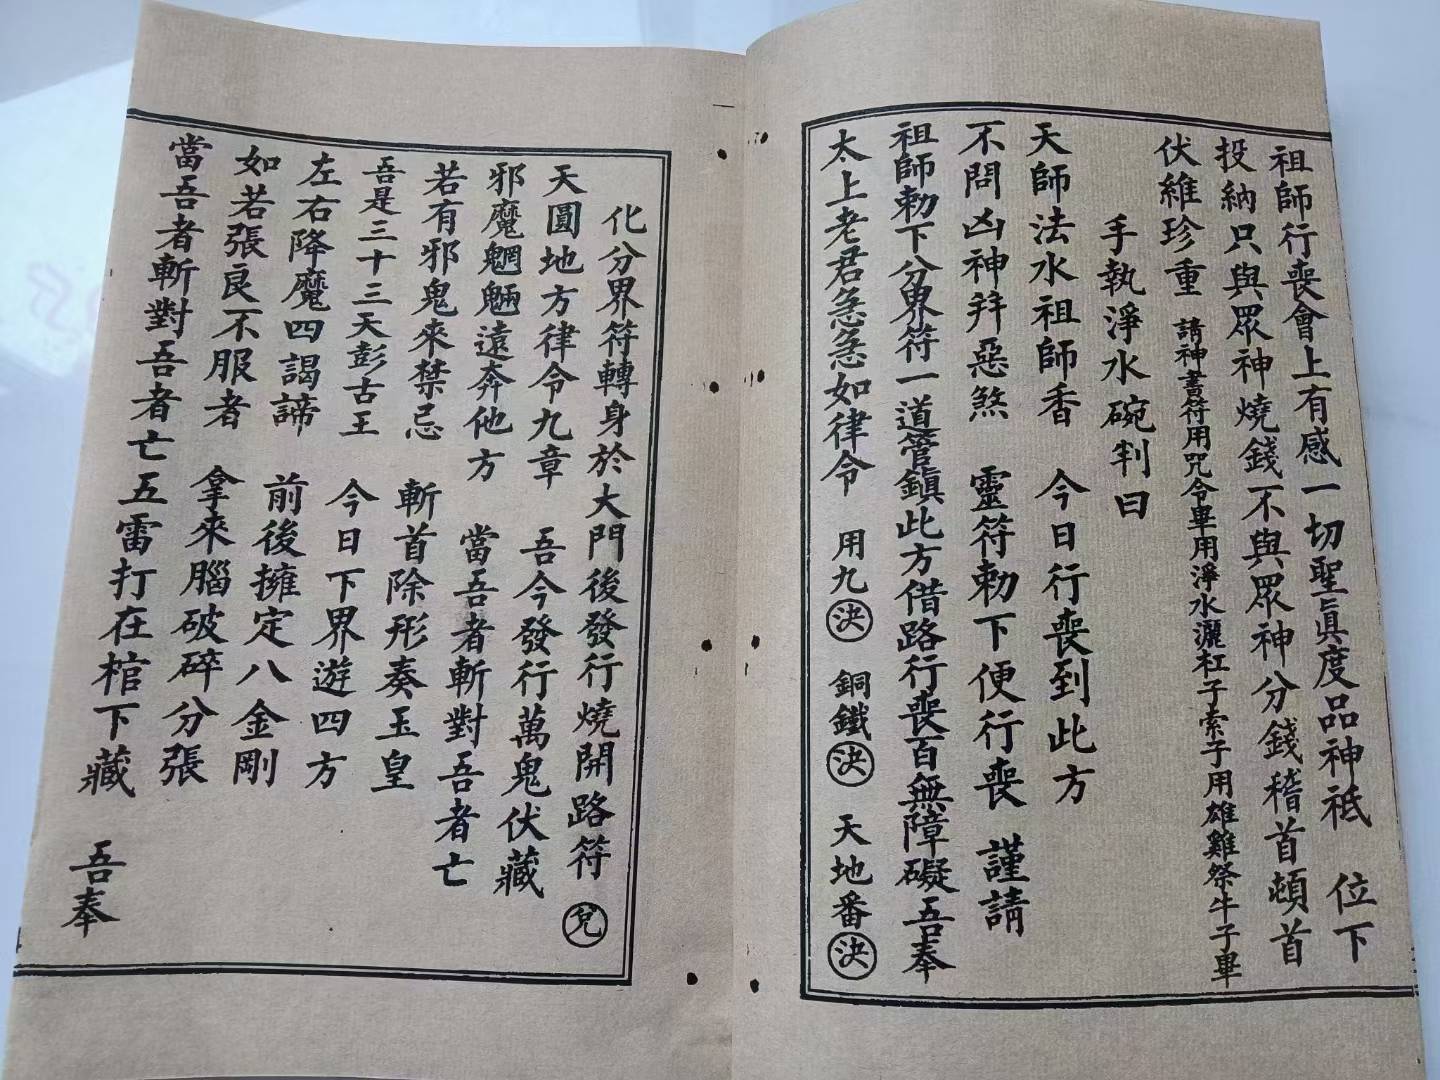 祖師行喪會上有感一切聖眞度品神祇　位下
投納只與眾神燒錢不與眾神分錢稽首頓首
伏維珍重　請神書符用咒令畢用淨水灑杠子索子用雄雞祭牛子畢
手執淨水碗判曰
天師法水祖師香　今日行喪到此方
不問凶神拜惡煞　靈符勅下便行喪　謹請
祖師勅下分界符一道管鎮此方借路行喪百無障礙吾奉
太上老君急急如律令　用九決　銅鐵決　天地番決
化分界符轉身於大門後發行燒開路符　兌
天圓地方律令九章　吾今發行萬鬼伏藏
邪魔魍魎遠奔他方　當吾者斬對吾者亡
若有邪鬼來禁忌　斬首除形奏玉皇
吾是三十三天彭古王　今日下界遊四方
左右降魔四謁諦　前後擁定八金剛
如若張良不服者　拿來腦破碎分張
當吾者斬對吾者亡五雷打在棺下藏　吾奉